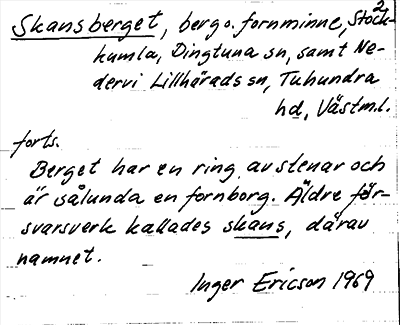 2
Skansberget, berg o. fornminne, Stock-
kumla, Dingtuna sn, samt Ne-
dervi Lillhärads sn, Tuhundra
hd, Västml.
forts.
Berget har en ring av stenar och
är sålunda en fornborg. Äldre för-
svarsverk kallades skans, därav
namnet.
Inger Ericson 1969